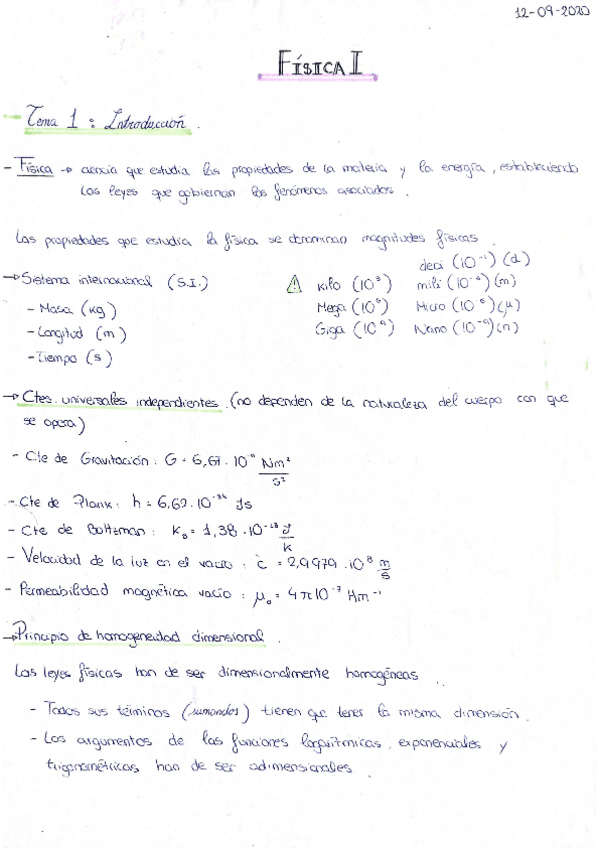 12-09-2020
FÍSICA I
Tema 1: Introducción.
- Física → ciencia que estudia las propiedades de la materia y la energía, estableciendo
las leyes que gobiernan los fenómenos asociados.
Las propiedades que estudia la física se denominan magnitudes físicas.
deci (10⁻¹) (d)
→ Sistema internacional (S.I.) ⚠ Kilo (10³) mili (10 ) (m)
- Masa (kg) Mega (10 ) Micro (10 ) (μ)
- Longitud (m) Giga (10⁹) Nano (10⁻⁹) (n)
- Tiempo (s)
→ Ctes. universales independientes. (no dependen de la naturaleza del cuerpo con que
se opera)
- Cte de Gravitación: G = 6,67 · 10 Nm²
- Cte de Plank: h = 6,62 · 10 Js
- Cte de Boltzman: K = 1,38 · 10 J/K
- Velocidad de la luz en el vacío: c = 2,9979 · 10⁸ m/s
- Permeabilidad magnética vacío: μ₀ = 4π10⁻⁷ Hm⁻¹
→ Principio de homogeneidad dimensional.
Las leyes físicas han de ser dimensionalmente homogéneas.
- Todos sus términos (sumandos) tienen que tener la misma dimensión.
- Los argumentos de las funciones logarítmicas, exponenciales y
trigonométricas han de ser adimensionales.